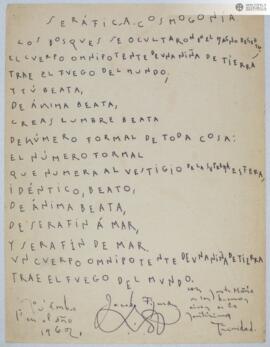 SERÁFICA COSMOGONIA
LOS BOSQUES SE OCULTARON EN EL
EL CUERPO OMNIPOTENTE DE UNA NIÑA DE TIERRA
TRAE EL FUEGO DEL MUNDO;
Y TÚ BEATA,
DE ÁNIMA BEATA,
CREAS LUMBRE BEATA
DE NÚMERO FORMAL DE TODA COSA:
EL NÚMERO FORMAL
QUE NUMERA AL VESTIGIO DE LA ESFERA,
IDÉNTICO, BEATO,
DE ÁNIMA BEATA,
DE SERAFÍN A MAR,
Y SERAFÍN DE MAR.
UN CUERPO OMNIPOTENTE DE UNA NIÑA DE TIERRA
TRAE EL FUEGO DEL MUNDO.
en el año
1962.
Trinidad.